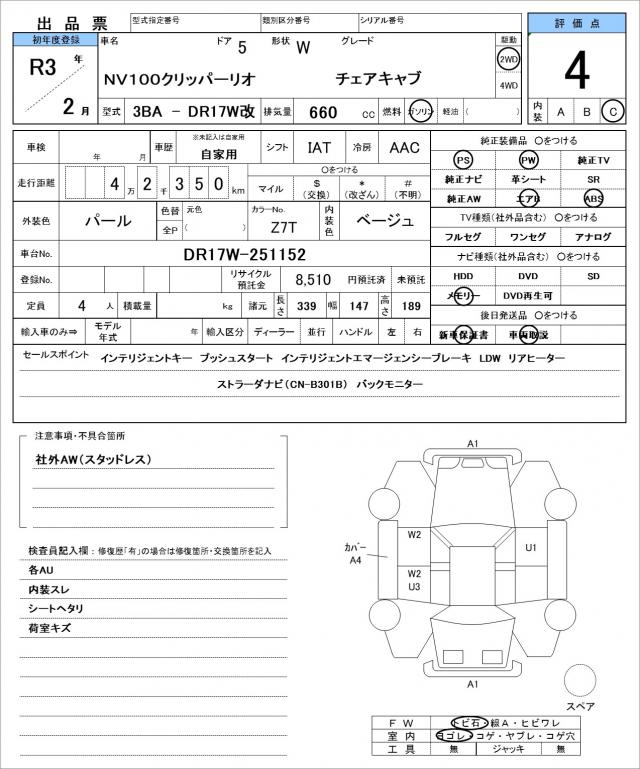 出品票 型式指定番号 類別区分番号 シリアル番号 評価点
初年度登録 車名 ドア 5 形状 W グレード 駆動
R3 年 2WD
NV100クリッパーリオ チェアキャブ 4WD 4
2 月 型式 3BA － DR17W改 排気量 660 CC 燃料 ガソリン 軽油 ( ) 内装 A B C
車検 年 月 車歴 ※未記入は自家用 自家用 シフト IAT 冷房 AAC 純正装備品 〇をつける
PS PW 純正TV
走行距離 4 万 2 千 3 5 0 km 〇をつける
マイル $(交換) *(改ざん) #(不明) 純正ナビ 革シート SR
純正AW エアB ABS
外装色 パール 色替 元色 カラーNo. 内装色 ベージュ
全P ( ) Z7T
TV種類(社外品含む) 〇をつける
フルセグ ワンセグ アナログ
車台No. DR17W-251152 ナビ種類(社外品含む) 〇をつける
登録No. リサイクル預託金 8,510 円預託済 未預託 HDD DVD SD
メモリー DVD再生可
定員 4 人 積載量 kg 諸元 長さ 339 幅 147 高さ 189
後日発送品 〇をつける
輸入車のみ⇒ モデル年式 年 輸入区分 ディーラー 並行 ハンドル 左 右 新車保証書 車両取説
セールスポイント インテリジェントキー プッシュスタート インテリジェントエマージェンシーブレーキ LDW リアヒーター
ストラーダナビ(CN-B301B) バックモニター
注意事項・不具合箇所
社外AW(スタッドレス)
検査員記入欄：修復歴「有」の場合は修復箇所・交換箇所を記入
各AU
内装スレ
シートヘタリ
荷室キズ
A1
W2
カバー A4
U1
W2
U3
A1
スペア
FW トビ石・線A・ヒビワレ
室内 ヨゴレ・コゲ・ヤブレ・コゲ穴
工具 無 ジャッキ 無